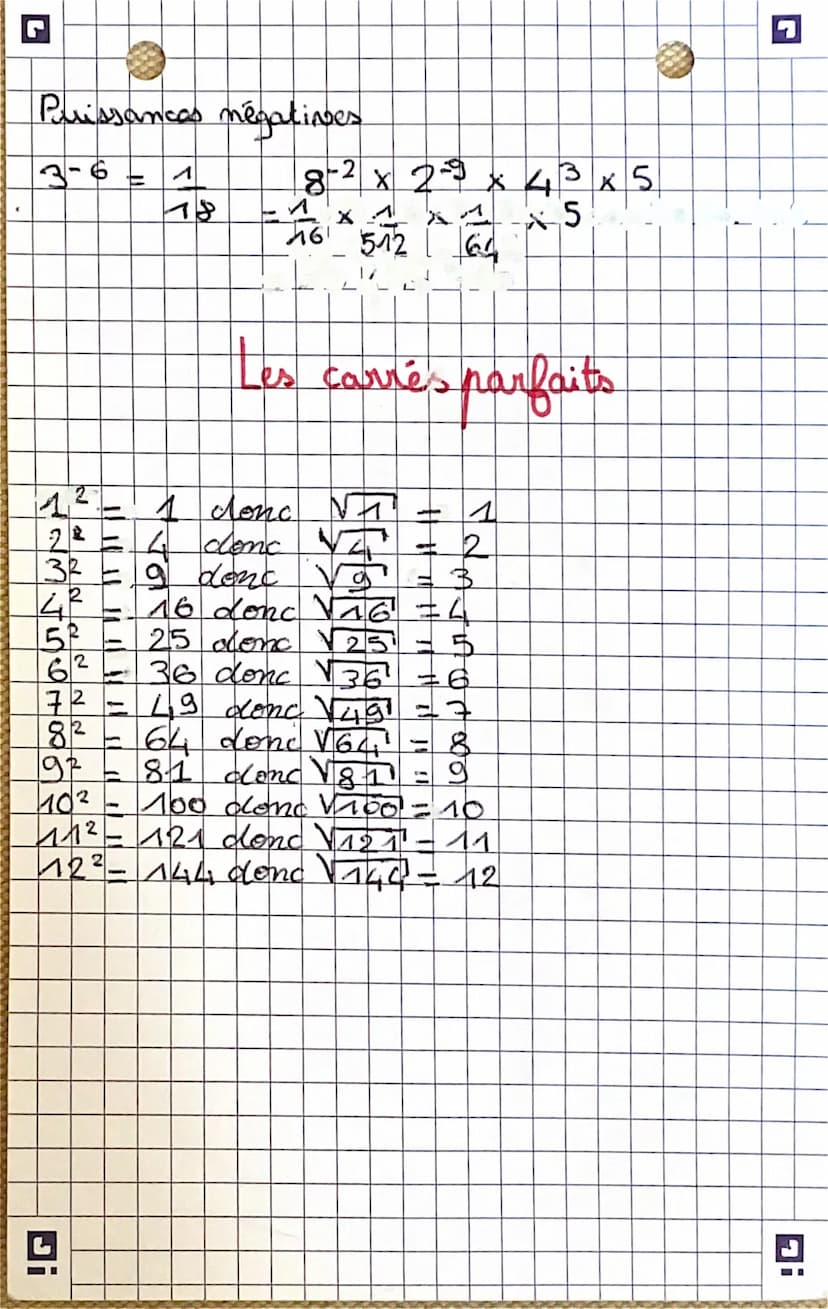 Puissances négatives
3⁻⁶ = 1/18
8⁻² × 2⁻⁹ × 4³ × 5
= 1/16 × 1/512 × 1/64 × 5
Les carrés parfaits
1² = 1 donc √1 = 1
2² = 4 donc √4 = 2
3² = 9 donc √9 = 3
4² = 16 donc √16 = 4
5² = 25 donc √25 = 5
6² = 36 donc √36 = 6
7² = 49 donc √49 = 7
8² = 64 donc √64 = 8
9² = 81 donc √81 = 9
10² = 100 donc √100 = 10
11² = 121 donc √121 = 11
12² = 144 donc √144 = 12